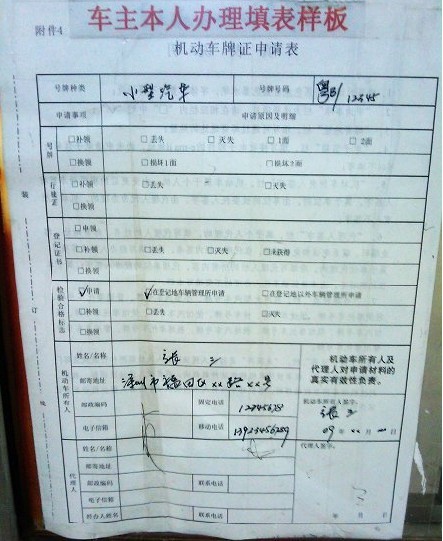 附件4
车主本人办理填表样板
机动车牌证申请表
号牌种类 小型汽车 号牌号码 粤B/12345
申请事项 申请原因及明细
号牌 □补领 □丢失 □灭失 □1面 □2面
□换领 □损坏1面 □损坏2面
行驶证 □补领 □丢失 □灭失
□换领
登记证书 □申领
□补领 □丢失 □灭失 □未获得
□换领
检验合格标志 ☑申请 ☑在登记地车辆管理所申请 □在登记地以外车辆管理所申请
□补领 □丢失 □灭失
□换领
机动车所有人 姓名/名称 张三
邮寄地址 深圳市福田区xx路xx号
邮政编码 固定电话 12345678
电子信箱 移动电话 13923456789
机动车所有人及
代理人对申请材料的
真实有效性负责。
机动车所有人签字:
张三
09年xx月 日
代理人 姓名/名称
邮寄地址
邮政编码 联系电话
电子信箱
经办人姓名 联系电话
代理人签字:
年 月 日
装
订